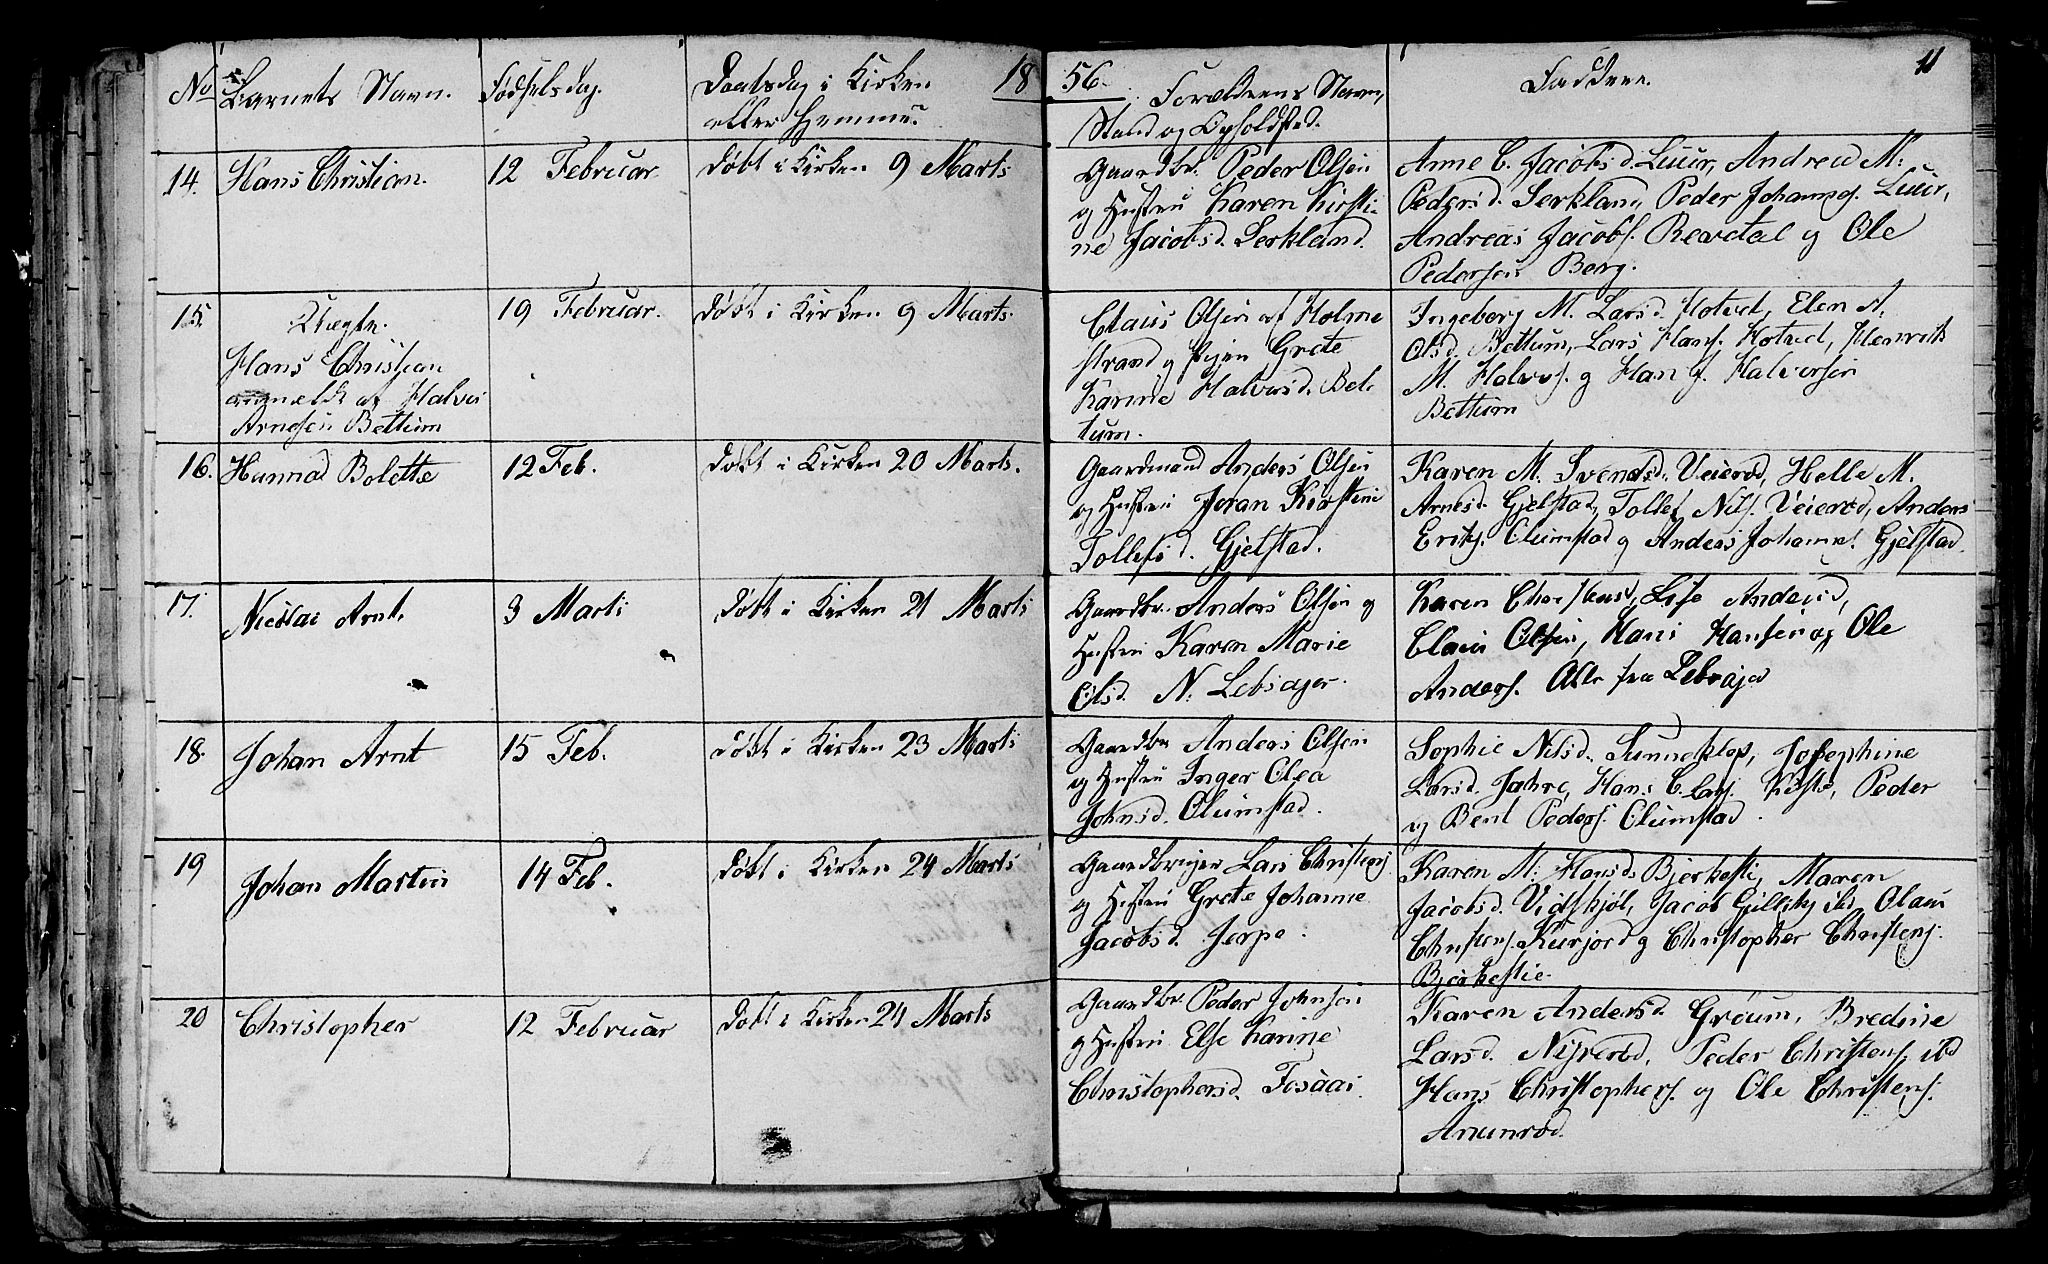 No Barnets Navn. Fødselsdag. Daabsdag i Kirken
eller Hjemme. 1856. Forældrenes Navn,
Stand og Opholdsted. Faddere. 11
14. Hans Christian. 12 Februar. Døbt i Kirken 9 Marts
Gaardbr. Peder Olsen
og Hustru Karen Kirsti-
ne Jacobsd. Serkland.
Anne C. Jacobsd. Luur, Andrea M.
Pedersd. Serkland, Peder Johannes. Luur,
Andreas Jacobs. Revetal og Ole
Pedersen Berg.
15. Uægte. 19 Februar. Døbt i Kirken 9 Marts.
Hans Christian
anmeldt af Halvor
Arnesen Bettum
Claus Olsen af Holme
strand og Pigen Grete
Karine Halvorsd. Bet-
tum.
Ingeborg M. Larsd. Hotvet, Elen A.
Olsd. Bettum, Lars Hans. Hotvet, Henrik
M. Halvors. og Han J. Halvorsen
Bettum
16. Hanna Bolette 12 Feb. Døbt i Kirken 20 Marts.
Gaardmand Anders Olsen
og Hustru Joran Kirstine
Tollefsd. Gjelstad.
Karen M. Svendsd. Veierød, Helle M.
Arnesd. Gjelstad, Tollef Nils. Veierød, Anders
Eriks. Olumstad og Anders Johanns. Gjelstad.
17. Nicolai Arnt. 3 Marti Døbt i Kirken 21 Marti
Gaardbr. Anders Olsen og
Hustru Karen Marie
Olsd. N. Lebsager.
Karen Christensd, Lise Andersd,
Claus Olsen, Hans Hansen og Ole
Anders. Alle fra
18. Johan Arnt 15 Feb. Døbt i Kirken 23 Marti
Gaardbr. Anders Olsen
og Hustru Inger Olea
Johnsd. Olumstad.
Sophie Nilsd. Sunneklep, Josephine
Larsd. Jahre, Hans C. Lars. Peder
og Bent Peders. Olumstad.
19 Johan Martin 14 Feb. Døbt i Kirken 24 Marts
Gaardbruger Lars Christens.
og Hustru Grete Johanne
Jacobsd. Jerpe.
Karen M. Hansd. Bjerkestie, Maren
Jacobsd. Vidskjøl, Jacob ibd, Olaus
Christens. Kurjord og Christopher Christens.
Bjerkestie.
20 Christopher 12 Februar Døbt i Kirken 24 Marts
Gaardbr. Peder Johnsen
og Hustru Else Karine
Christophersd. Fosaas.
Karen Andersd. Grøum, Bredine
Larsd. Nisrerød, Peder Christens. ibd
Hans Christophers. og Ole Christens.
Anunrød.